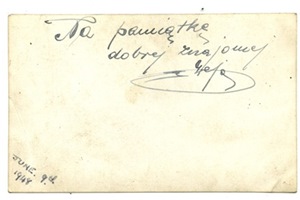 Na pamiątkę
dobrej znajomej
JUNE. 9th
1948